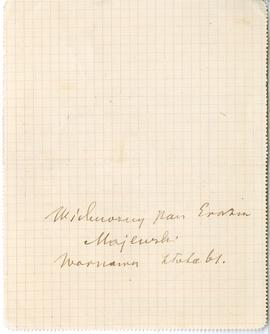 Wielmożny pan Erazm
Majewski
Warszawa Złota 61.